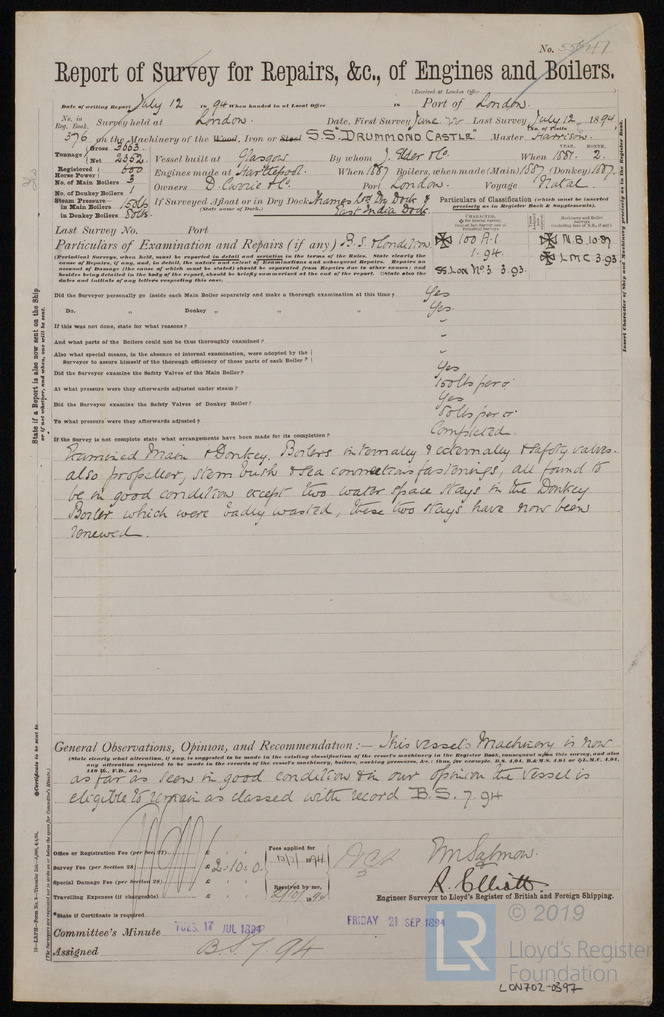 No. 55
Report of Survey for Repairs, &c., of Engines and Boilers.
(Received at London Office
Date of writing Report July 12 18 94 When handed in at Local Office 18 Port of London.
No. in Reg. Book. Survey held at London. Date, First Survey June 20 Last Survey July 12 1894
(No. of Visits
376 on the Machinery of the Wood, Iron or Steel S.S. "DRUMMOND CASTLE" Master Harrison.
Tonnage Gross 3663 Net 2352
Vessel built at Glasgow By whom J. Elder & Co. When YEAR. 1881. MONTH. 2.
Registered Horse Power 500
Engines made at Hartlepool. When 1887 Boilers, when made (Main) 1887 (Donkey) 1887.
No. of Main Boilers 3
Owners D. Currie & Co. Port London. Voyage Natal.
No. of Donkey Boilers 1
Steam Pressure— in Main Boilers 150lb in Donkey Boilers 80lb.
If Surveyed Afloat or in Dry Dock Thames Dry Dock & East India Dock.
(State name of Dock.)
Particulars of Classification (which must be inserted precisely as in Register Book & Supplements).
Last Survey No. Port
CHARACTER.
100 A.1
1.94
SS. Lon No 3 3.93.
N.B. 10.87
LMC 3.93
Particulars of Examination and Repairs (if any) B.S. & Condition.
(Periodical Surveys, when held, must be reported in detail and seriatim in the terms of the Rules. State clearly the
cause of Repairs, if any, and, in detail, the nature and extent of Examinations and subsequent Repairs. Repairs on
account of Damage (the cause of which must be stated) should be separated from Repairs due to other causes; and
besides being detailed in the body of the report, should be briefly summarised at the end of the report. State also the
dates and initials of any letters respecting this case.
Did the Surveyor personally go inside each Main Boiler separately and make a thorough examination at this time? Yes
Do. „ Donkey „ „ „ „ Yes.
If this was not done, state for what reasons? -
And what parts of the Boilers could not be thus thoroughly examined? -
Also what special means, in the absence of internal examination, were adopted by the
Surveyor to assure himself of the thorough efficiency of those parts of each Boiler? -
Did the Surveyor examine the Safety Valves of the Main Boiler? Yes
At what pressure were they afterwards adjusted under steam? 150lbs per □"
Did the Surveyor examine the Safety Valves of Donkey Boiler? Yes
To what pressure were they afterwards adjusted? 80lbs per □"
If the Survey is not complete state what arrangements have been made for its completion? Completed.
Examined Main & Donkey Boilers internally & externally & safety valves.
also propeller, stern bush & sea connections fastenings, all found to
be in good condition except two water space stays in the Donkey
Boiler which were badly wasted, these two stays have now been
renewed.
General Observations, Opinion, and Recommendation:— This vessel's Machinery is now
(State clearly what alteration, if any, is suggested to be made in the existing classification of the vessel's machinery in the Register Book, consequent upon this survey, and also
any alteration required to be made in the records of the vessel's machinery, boilers, working pressures, &c.; thus, for example, B.S. 4,94, B.&M.S. 4,94 or L.M.C. 4,94,
as far as seen in good condition & in our opinion the vessel is
eligible to remain as classed with record B.S. 7.94
Office or Registration Fee (per Sec. 27) £ : :
Survey Fee (per Section 28) £ 2 : 10 : 0
Special Damage Fee (per Section 28) £ : :
Travelling Expenses (if chargeable) £ : :
Fees applied for
Received by me,
Wm Salmon.
R. Elliott.
Engineer Surveyor to Lloyd's Register of British and Foreign Shipping.
*State if Certificate is required
Committee's Minute TUES. 17 JUL 1894 FRIDAY 21 SEP 1894
Assigned B.S. 7.94
State if a Report is also now sent on the Ship
or if not whether, and when, one will be sent.
Insert Character of Ship and Machinery precisely as in the Register Book.
LR
© 2019
Lloyd's Register
Foundation
LON702-0397